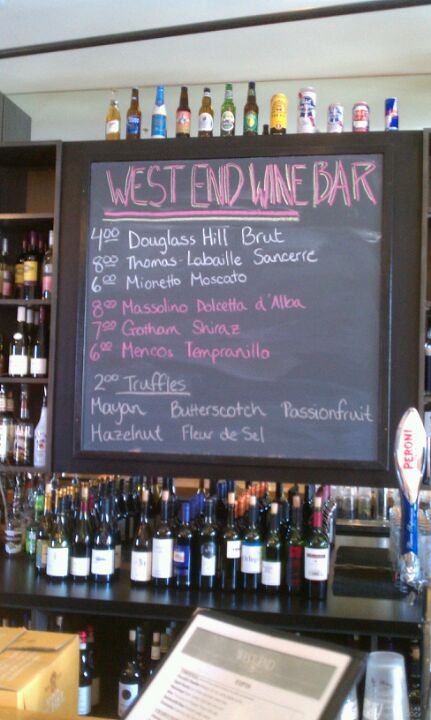 WEST END WINE BAR
4.00 Douglass Hill Brut
8.00 Thomas-Labaille Sancerre
6.00 Mionetto Moscato
8.00 Massolino Dolcetta d'Alba
7.00 Gotham Shiraz
6.00 Mencos Tempranillo
2.00 Truffles
Mayan Butterscotch Passionfruit
Hazelnut Fleur de Sel
PERONI